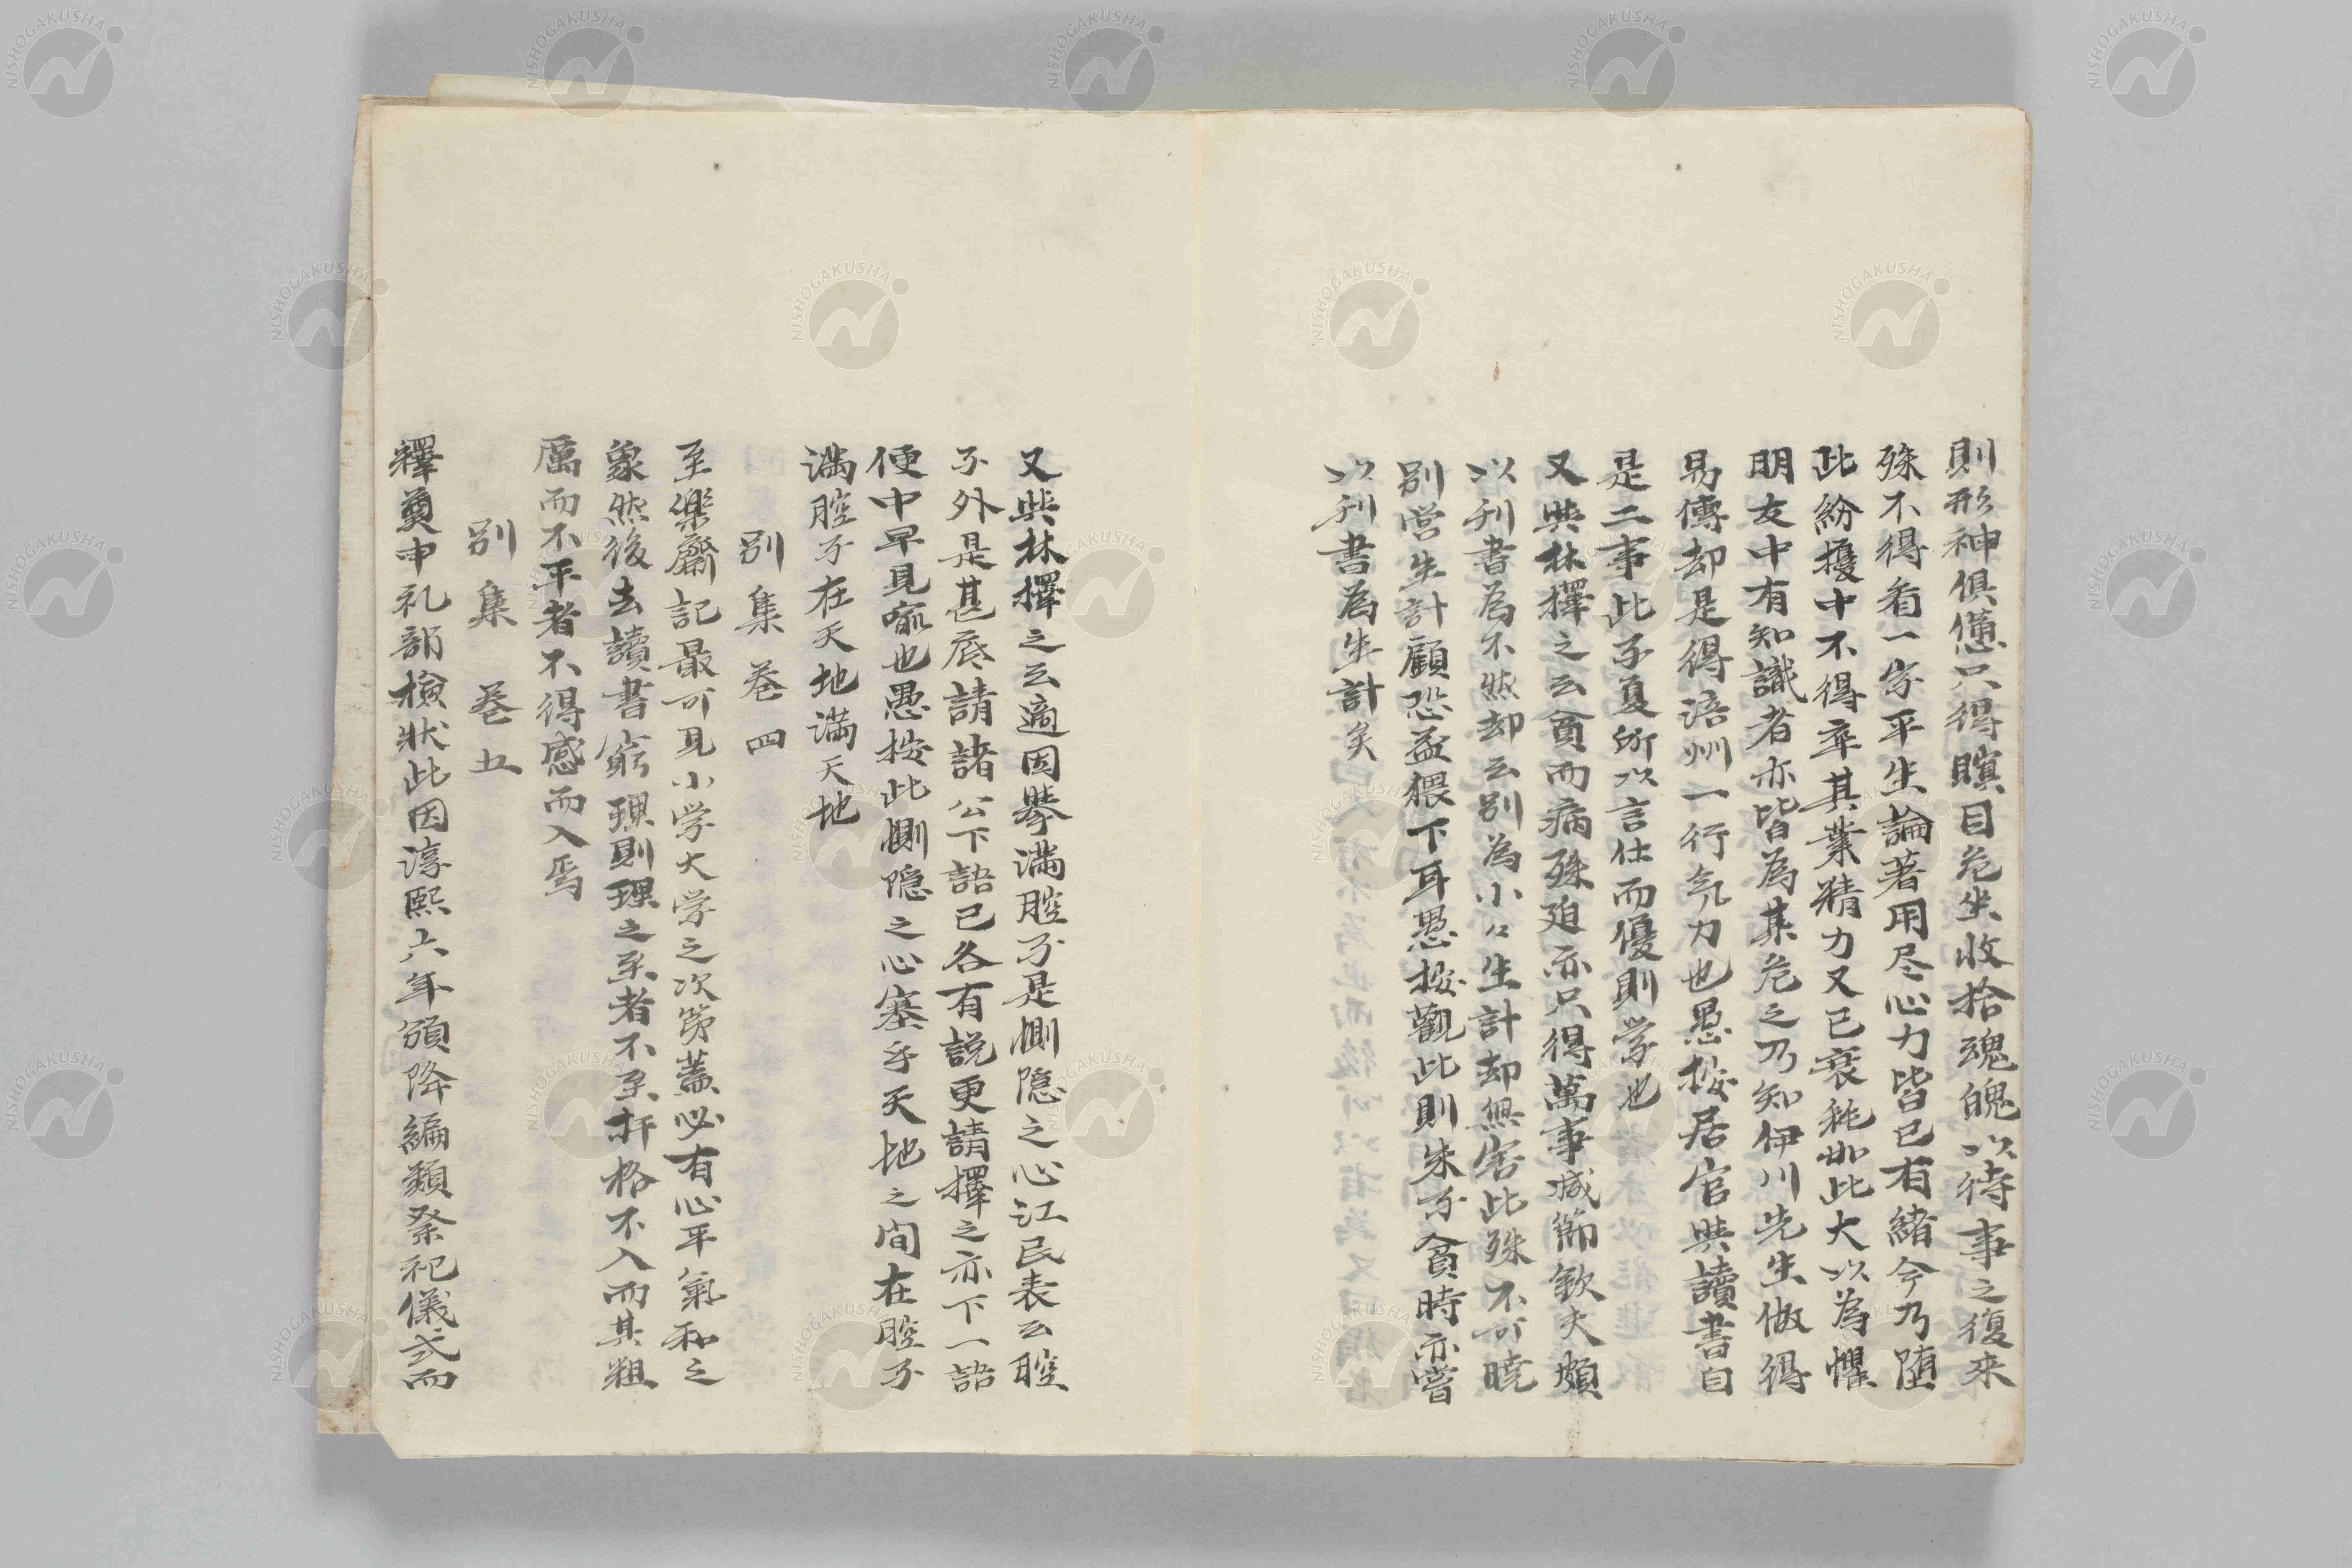 則形神俱憊只得瞑目危坐收拾魂魄以待事之復来
殊不得看一字平生論著用尽心力皆已有緒今乃堕
此紛擾中不得卒其業精力又已衰耗如此大以為懼
朋友中有知識者亦皆為某危之乃知伊川先生做得
易傳却是得涪州一行気力也愚按居官與讀書自
是二事此子夏所以言仕而優則学也
又與林擇之云貧而病殊迫亦只得萬事減節欽夫頗
以刊書為不然却云別為小々生計却無害此殊不可曉
別営生計顧恐益猥下耳愚按觀此則朱子貧時亦嘗
以刊書為生計矣
又與林擇之云適因擧滿腔子是惻隠之心江民表云腔
子外是甚底請諸公下語已各有説更請擇之亦下一語
便中早見喩也愚按此惻隠之心塞乎天地之間在腔子
満腔子在天地満天地
別集巻四
至樂齋記最可見小学大学之次第蓋必有心平氣和之
象然後去讀書窮理則理之至者不至扞格不入而其粗
厲而不平者不得感而入焉
別集巻五
釋奠申礼部檢狀此因淳熙六年頒降編類祭祀儀式而
NISHOGAKUSHA